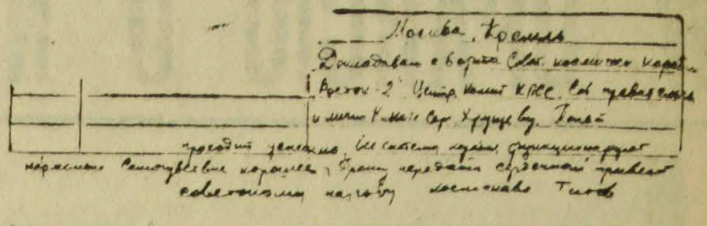 Москва, Кремль
Докладываю с борта Сов. космическ. кораб.
Восток-2 Центр. комит КПСС, Сов правительств
и лично Хрущеву. Полет
проходит успешно, Все системы корабля функционируют
нормально Самочувствие хорошее, Прошу передать сердечный привет
советскому народу космонавт Титов